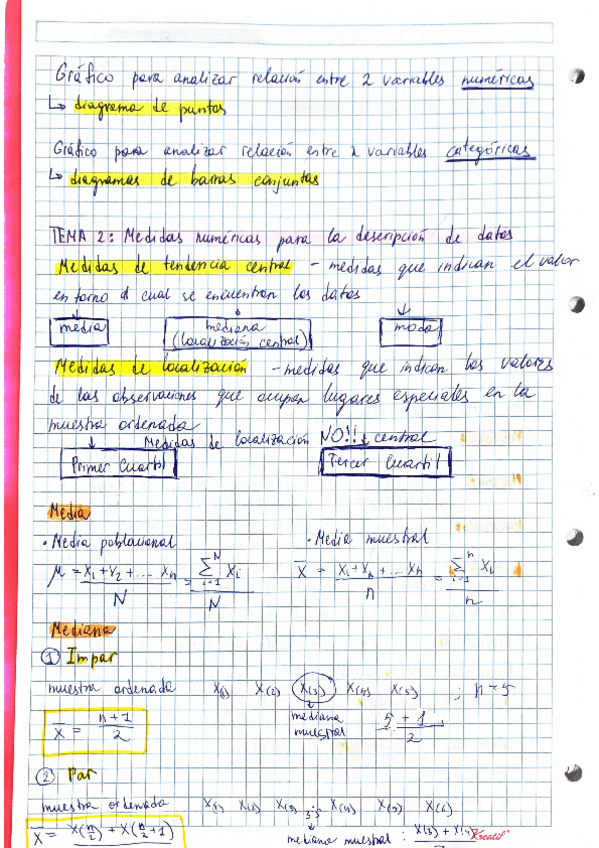 Gráfico para analizar relación entre 2 variables numéricas
↳ diagrama de puntos
Gráfico para analizar relación entre 2 variables categóricas
↳ diagramas de barras conjuntas
TEMA 2: Medidas numéricas para la descripción de datos
Medidas de tendencia central - medidas que indican el valor
en torno al cual se encuentran los datos
media mediana moda
(localización central)
Medidas de localización - medidas que indican los valores
de las observaciones que ocupan lugares especiales en la
muestra ordenada
Medidas de localización NO!! central
Primer Cuartil Tercer Cuartil
Media
• Media poblacional • Media muestral
μ = X₁+X₂+... Xₙ / N = Σᵢ₌₁ᴺ Xᵢ / N X̄ = X₁+Xₙ+... Xₙ / n = Σᵢ₌₁ⁿ Xᵢ / n
Mediana
① Impar
muestra ordenada X(1) X(2) X(3) X(4) X(5) ; n=5
X̄ = n+1 / 2 mediana muestral 5+1 / 2
② Par
muestra ordenada X(1) X(2) X(3) 3,5 X(4) X(5) X(6)
X̄ = X(n/2) + X(n/2+1) mediana muestral : X(3) + X(4)
Kreatif